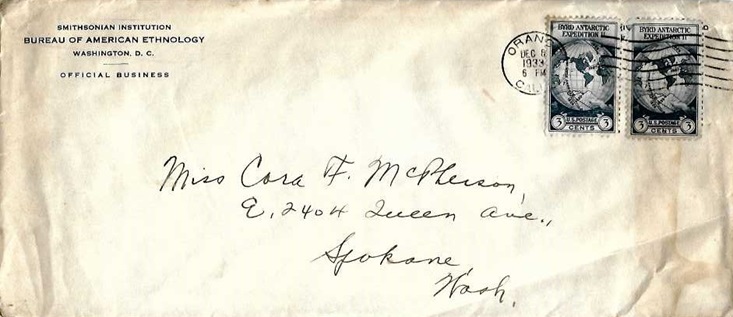 SMITHSONIAN INSTITUTION
BUREAU OF AMERICAN ETHNOLOGY
WASHINGTON, D. C.
OFFICIAL BUSINESS
BYRD ANTARCTIC
EXPEDITION II
3 U.S. POSTAGE 3
CENTS
BYRD ANTARCTIC
EXPEDITION II
3 U.S. POSTAGE 3
CENTS
DEC
1933
6 PM
Miss Cora F. McPherson,
E. 2404 Queen Ave.,
Spokane
Wash.